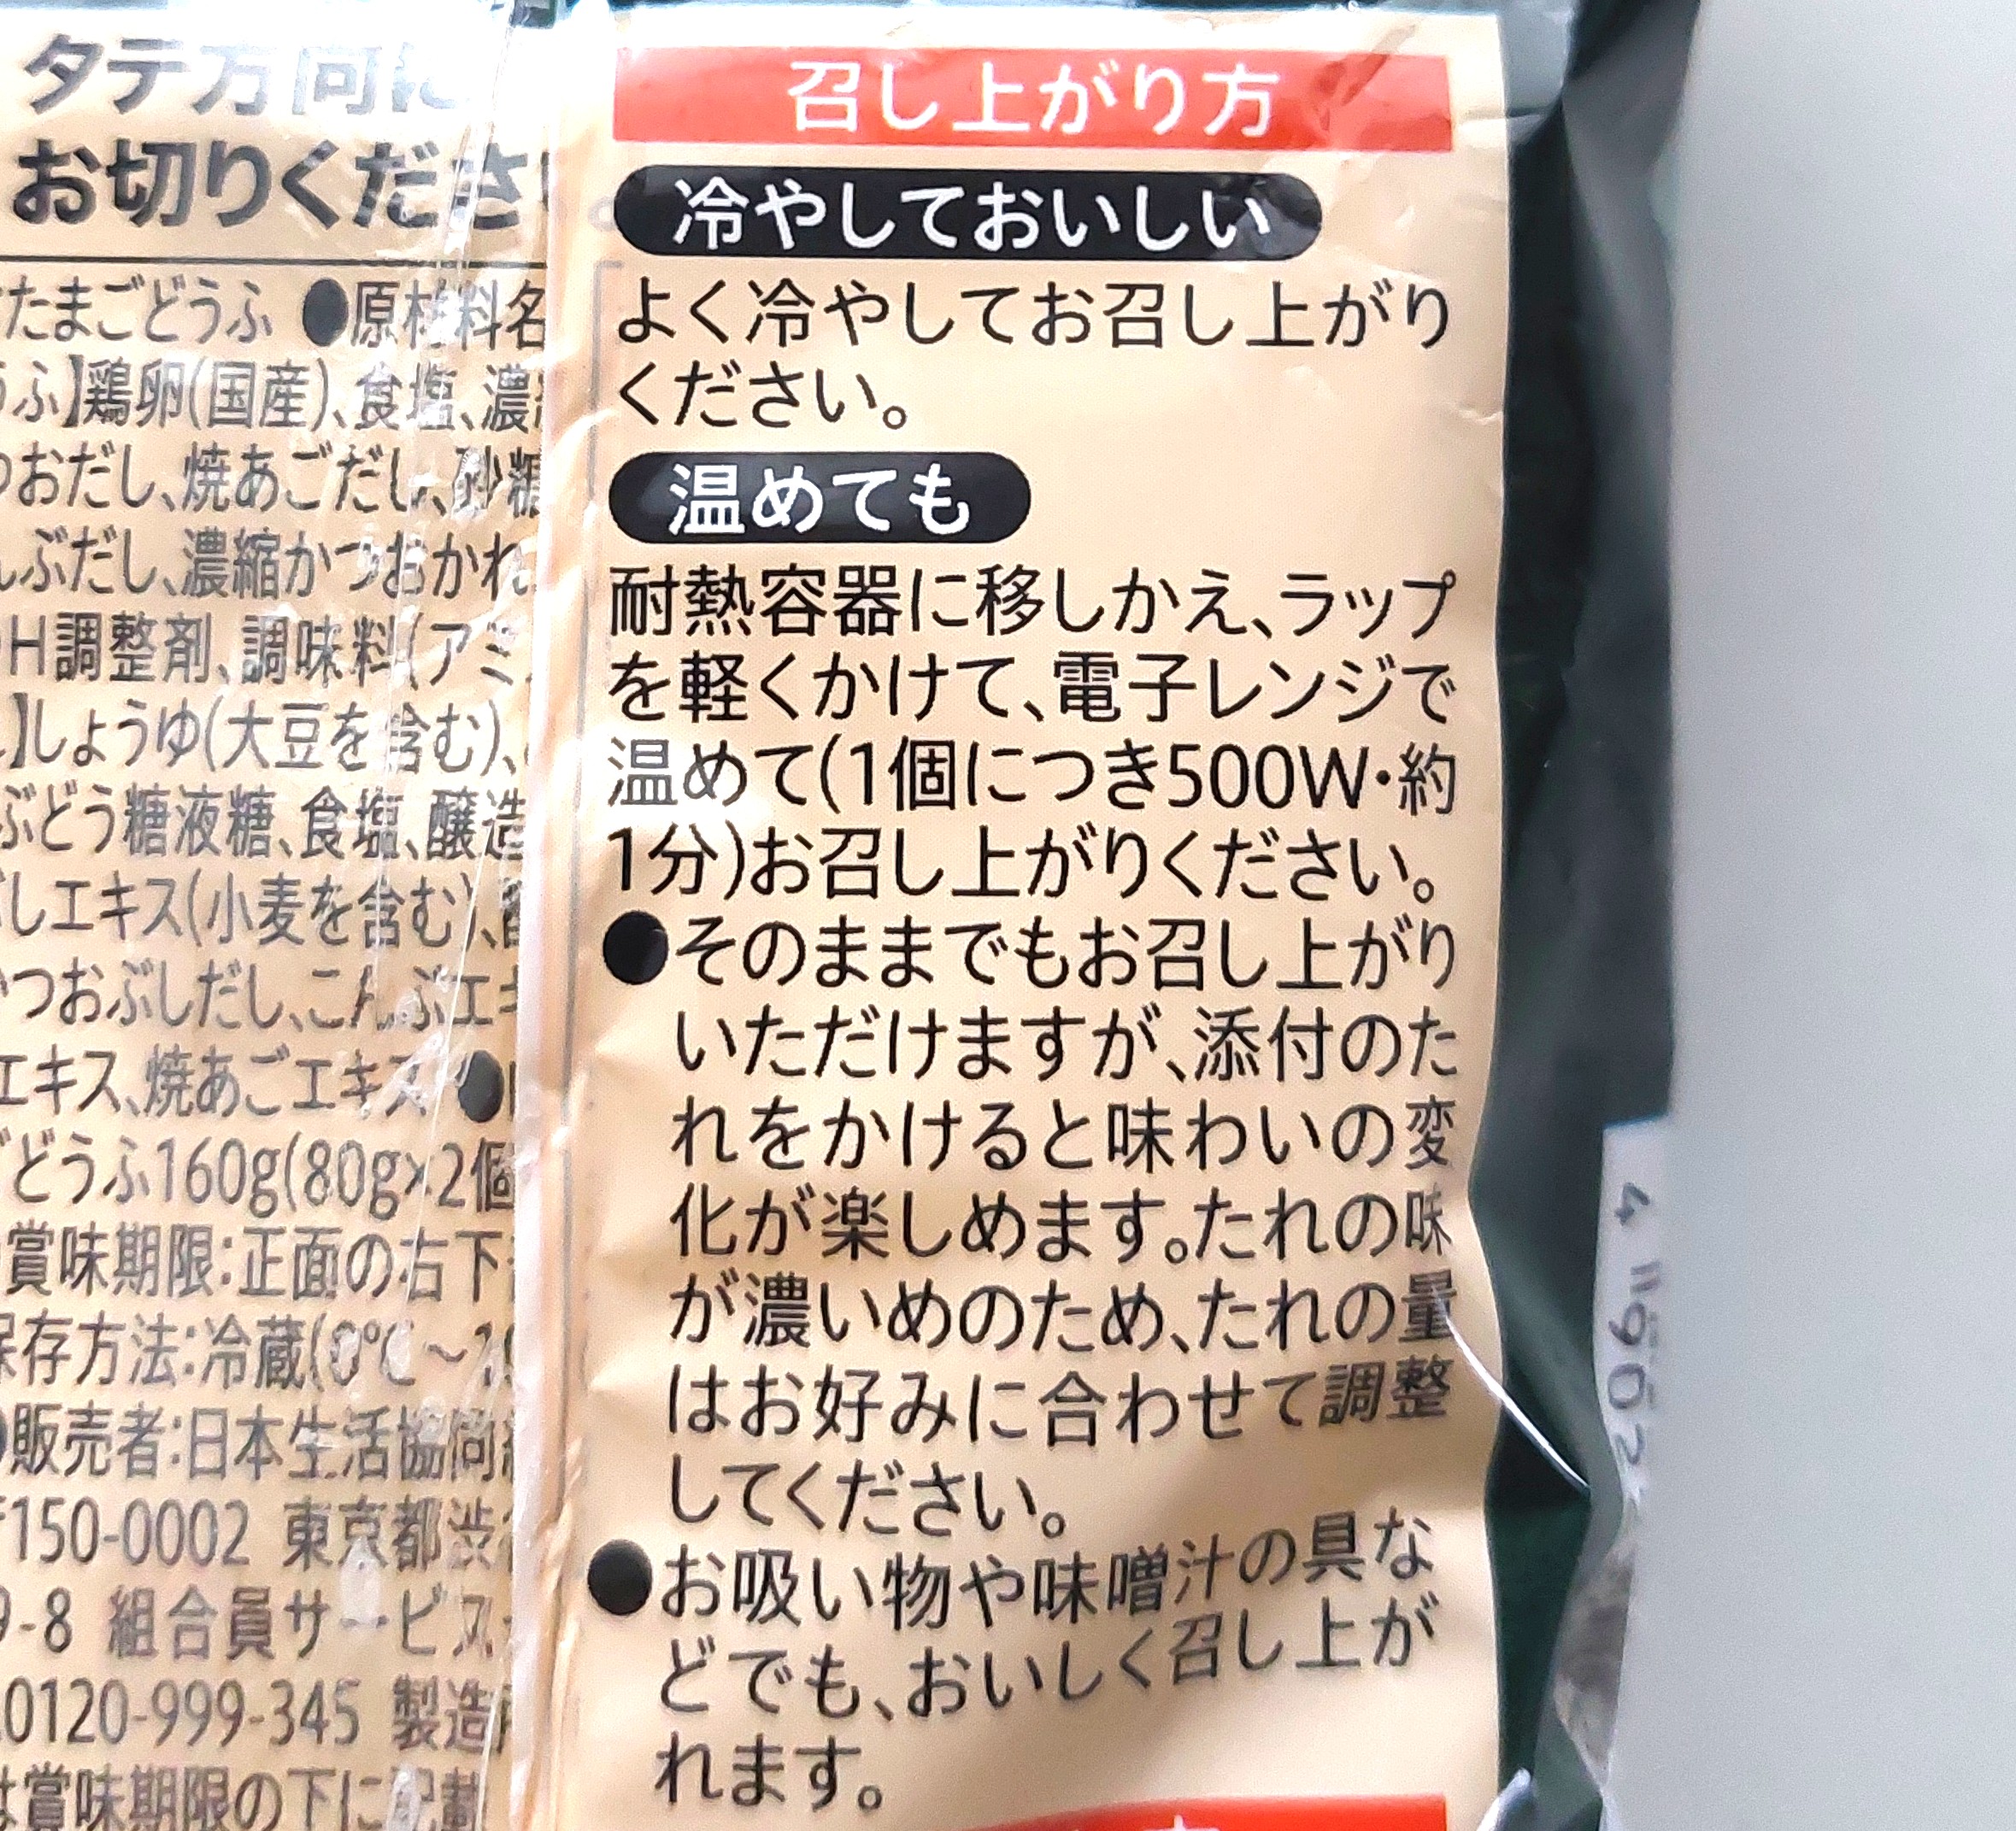 タテ方向に
お切りくださ
たまごどうふ ●原材料名
ふ】鶏卵(国産)、食塩、濃
おだし、焼あごだし、砂糖
ぶだし、濃縮かつおかれ
H調整剤、調味料(アミ
】しょうゆ(大豆を含む)、
ぶどう糖液糖、食塩、醸造
しエキス(小麦を含む)、
つおぶしだし、こんぶエキ
エキス、焼あごエキス ●
どうふ160g(80g×2個
賞味期限:正面の右下
保存方法:冷蔵(0℃~1
販売者:日本生活協同
150-0002 東京都渋
9-8 組合員サービス
0120-999-345 製造
は賞味期限の下に記載
召し上がり方
冷やしておいしい
よく冷やしてお召し上がり
ください。
温めても
耐熱容器に移しかえ、ラップ
を軽くかけて、電子レンジで
温めて(1個につき500W・約
1分)お召し上がりください。
●そのままでもお召し上がり
いただけますが、添付のた
れをかけると味わいの変
化が楽しめます。たれの味
が濃いめのため、たれの量
はお好みに合わせて調整
してください。
●お吸い物や味噌汁の具な
どでも、おいしく召し上が
れます。